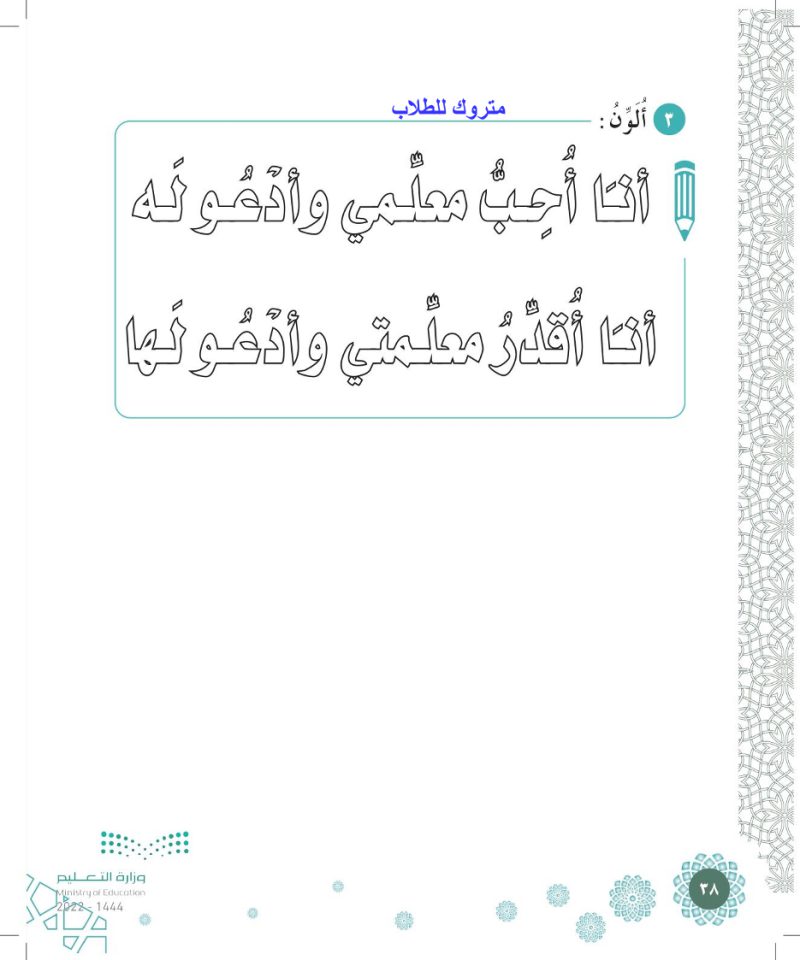 متروك للطلاب
٣ أُلَوِّنُ:
أنَا أُحِبُّ معلِّمي وأدْعُو لَه
أنَا أُقدِّرُ معلِّمتي وأدْعُو لَها
وزارة التعـليم
Ministry of Education
2022 - 1444
٣٨